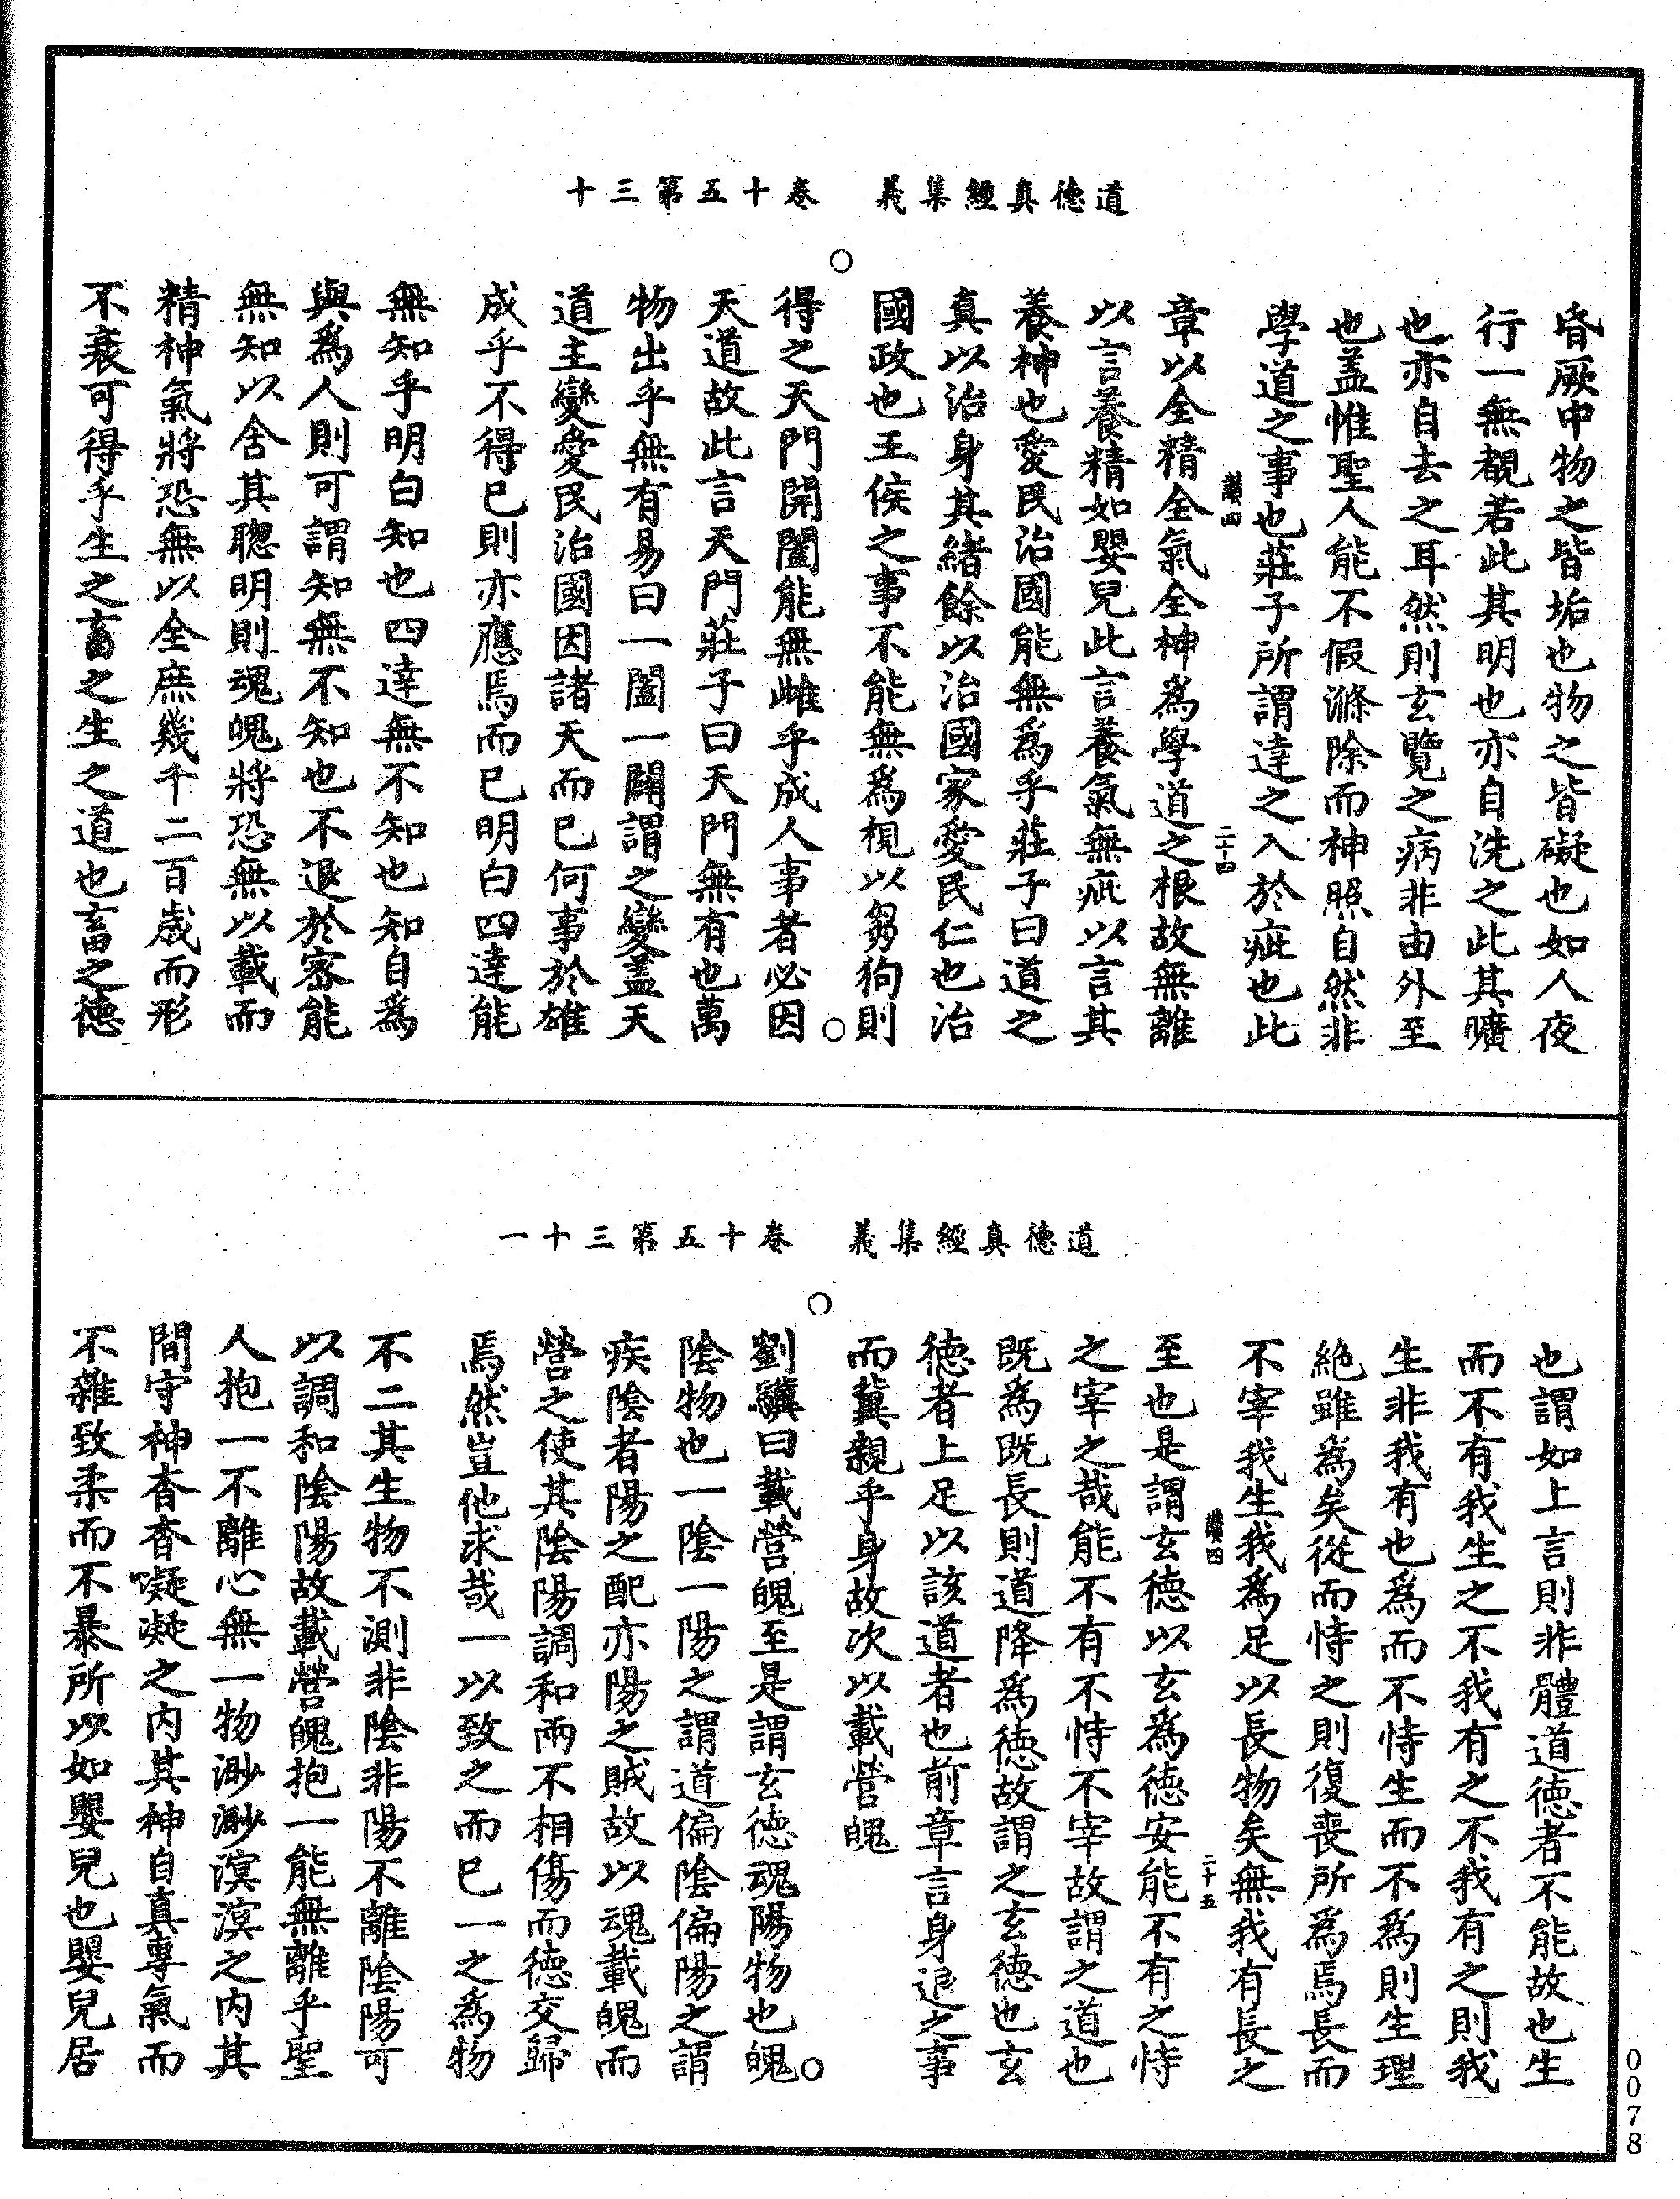 道德真經集義　卷十五第三十
昏厥中物之皆垢也物之皆礙也如人夜
行一無覩若此其明也亦自洗之此其曠
也亦自去之耳然則玄覽之病非由外至
也盖惟聖人能不假滌除而神照自然非
學道之事也莊子所謂達之入於疵也此
二十四
章以全精全氣全神爲學道之根故無離
以言養精如嬰兒此言養氣無疵以言其
養神也愛民治國能無爲乎莊子曰道之
真以治身其緒餘以治國家愛民仁也治
國政也王侯之事不能無爲視以芻狗則
得之天門開闔能無雌乎成人事者必因
天道故此言天門莊子曰天門無有也萬
物出乎無有易曰一闔一闢謂之變盖天
道主變愛民治國因諸天而已何事於雄
成乎不得已則亦應焉而已明白四達能
無知乎明白知也四達無不知也知自爲
與爲人則可謂知無不知也不退於密能
無知以舍其聦明則魂魄將恐無以載而
精神氣將恐無以全庶幾千二百歲而形
不衰可得乎生之畜之生之道也畜之德
道德真經集義　卷十五第三十一
也謂如上言則非體道德者不能故也生
而不有我生之不我有之不我有之則我
生非我有也爲而不恃生而不爲則生理
絶雖爲矣從而恃之則復喪所爲焉長而
不宰我生我爲足以長物矣無我有長之
二十五
至也是謂玄德以玄爲德安能不有之恃
之宰之哉能不有不恃不宰故謂之道也
既爲既長則道降爲德故謂之玄德也玄
德者上足以該道者也前章言身退之事
而冀親乎身故次以載營魄
劉驥曰載營魄至是謂玄德魂陽物也魄
陰物也一陰一陽之謂道偏陰偏陽之謂
疾陰者陽之配亦陽之賊故以魂載魄而
營之使其陰陽調和兩不相傷而德交歸
焉然豈他求哉一以致之而已一之爲物
不二其生物不測非陰非陽不離陰陽可
以調和陰陽故載營魄抱一能無離乎聖
人抱一不離心無一物渺渺溟溟之内其
間守神杳杳凝凝之内其神自真專氣而
不雜致柔而不暴所以如嬰兒也嬰兒居
0078